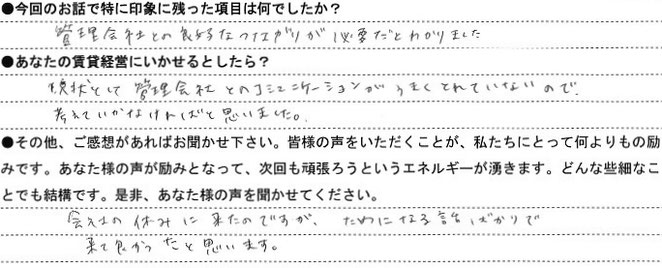 ●今回のお話で特に印象に残った項目は何でしたか？
管理会社との良好なつながりが必要だとわかりました
●あなたの賃貸経営にいかせるとしたら？
現状として管理会社とのコミュニケーションがうまくとれていないので、
考えていかなければと思いました。
●その他、ご感想があればお聞かせ下さい。皆様の声をいただくことが、私たちにとって何よりもの励
みです。あなた様の声が励みとなって、次回も頑張ろうというエネルギーが湧きます。どんな些細なこ
とでも結構です。是非、あなた様の声を聞かせてください。
会社の休みに来たのですが、ためになる話ばかりで
来て良かったと思います。